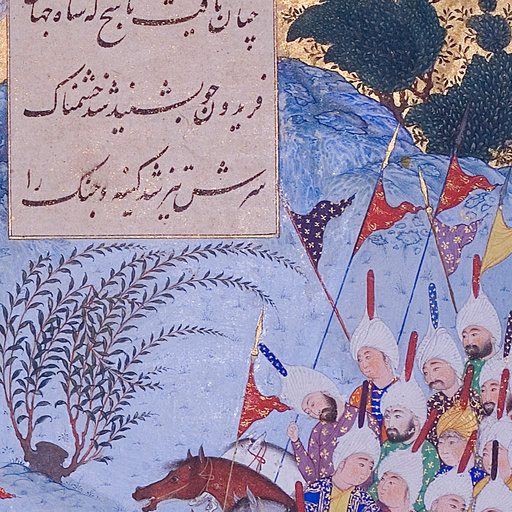 چنان یافت پاسخ که شاه جهان
فریدون چو بشنید شد خشمناک
سرش تیز شد کینه و جنگ را